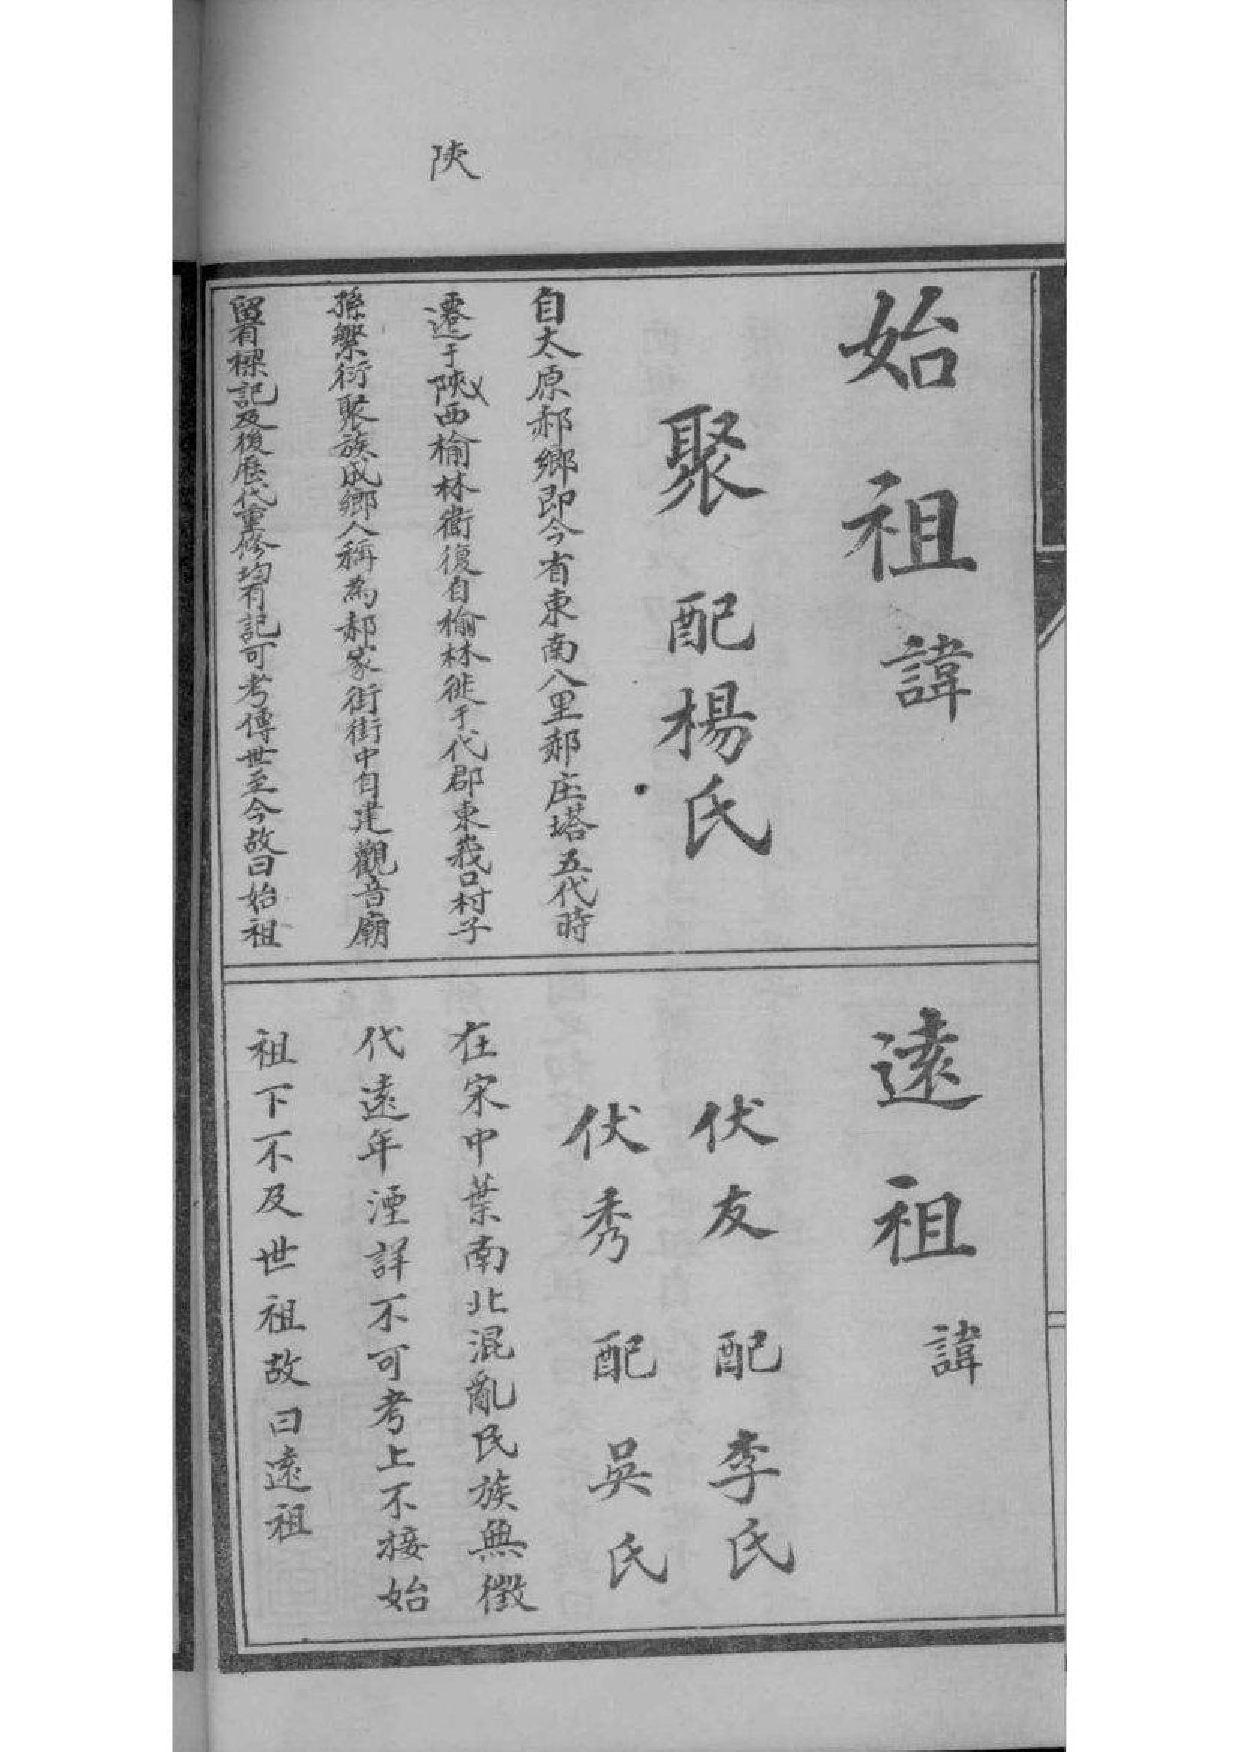 陝
始祖諱
聚 配楊氏
自太原郝鄉即今省東南八里郝庄塔五代時
遷于陝西榆林衞復自榆林徙于代郡東峩口村子
孫繁衍聚族成鄉人稱為郝家街街中自建觀音廟
留有樑記及後歷代重修均有記可考傳世至今故曰始祖
遠祖諱
伏友 配李氏
伏秀 配吳氏
在宋中葉南北混亂民族無徵
代遠年湮詳不可考上不接始
祖下不及世祖故曰遠祖